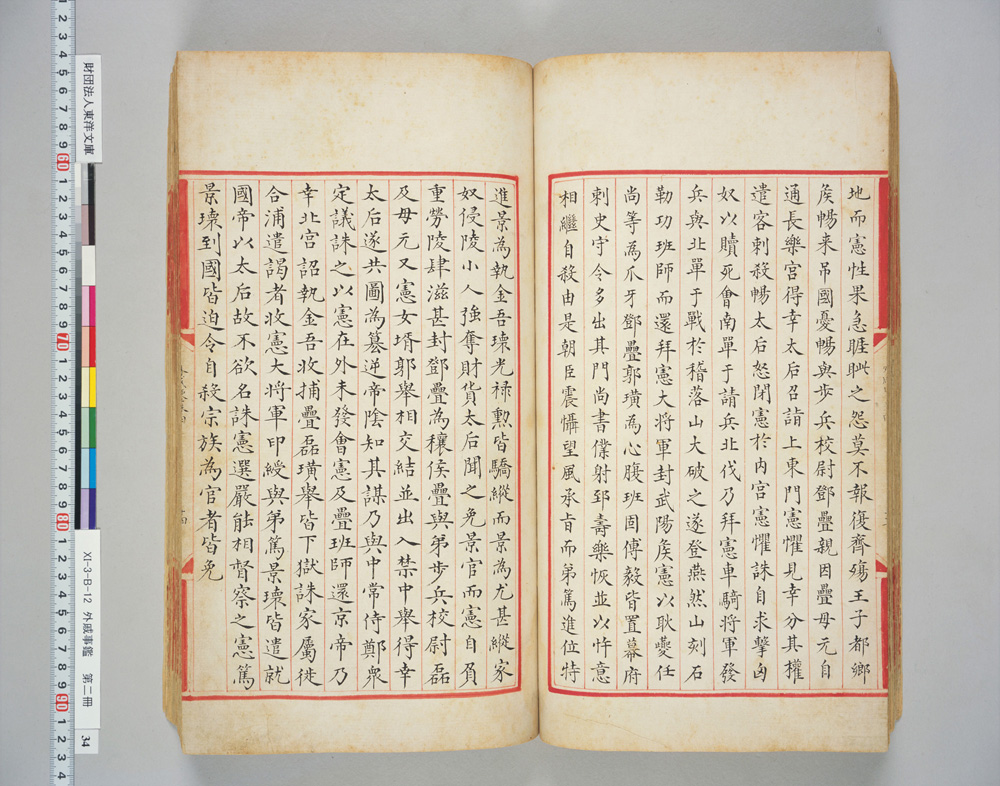 地而憲性果急睚眦之怨莫不報復齊殤王子都鄉
矦暢来吊國憂暢與步兵校尉鄧疊親因疊母元自
通長樂宮得幸太后召詣上東門憲懼見幸分其權
遣客刺殺暢太后怒閉憲於内宮憲懼誅自求擊匈
奴以贖死會南單于請兵北伐乃拜憲車騎将軍發
兵與北單于戰於稽落山大破之遂登燕然山刻石
勒功班師而還拜憲大将軍封武陽矦憲以耿夔任
尚等為爪牙鄧疊郭璜為心腹班固傅毅皆置幕府
刺史守令多出其門尚書僕射郅壽樂恢並以忤意
相繼自殺由是朝臣震懾望風承旨而弟篤進位特
進景為執金吾瓌光禄勲皆驕縱而景為尤甚縱家
奴侵陵小人強奪財貨太后聞之免景官而憲自負
重勞陵肆滋甚封鄧疊為穰侯疊與弟步兵校尉磊
及母元又憲女壻郭舉相交結並出入禁中舉得幸
太后遂共圖為簒逆帝陰知其謀乃與中常侍鄭衆
定議誅之以憲在外未發會憲及疊班師還京帝乃
幸北宮詔執金吾收捕疊磊璜舉皆下獄誅家屬徙
合浦遣謁者收憲大将軍印綬與弟篤景瓌皆遣就
國帝以太后故不欲名誅憲選嚴能相督察之憲篤
景瓌到國皆迫令自殺宗族為官者皆免
財団法人東洋文庫
XI-3-B-12 外戚事鑑 第二冊
34